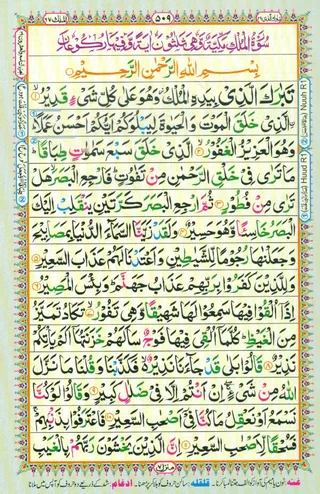 الملك ٦٧
٥٠٩
سُوْرَةُ الْمُلْكِ مَكِّيَّةٌ وَّهِيَ ثَلٰثُوْنَ اٰيَةً وَّفِيْهَا رُكُوْعَانِ
بِسْمِ اللّٰهِ الرَّحْمٰنِ الرَّحِيْمِ
تَبٰرَكَ الَّذِيْ بِيَدِهِ الْمُلْكُ وَهُوَ عَلٰى كُلِّ شَيْءٍ قَدِيْرٌ ۝١
الَّذِيْ خَلَقَ الْمَوْتَ وَالْحَيٰوةَ لِيَبْلُوَكُمْ اَيُّكُمْ اَحْسَنُ عَمَلًا
وَهُوَ الْعَزِيْزُ الْغَفُوْرُ ۝٢ الَّذِيْ خَلَقَ سَبْعَ سَمٰوٰتٍ طِبَاقًا
مَا تَرٰى فِيْ خَلْقِ الرَّحْمٰنِ مِنْ تَفٰوُتٍ فَارْجِعِ الْبَصَرَ هَلْ
تَرٰى مِنْ فُطُوْرٍ ۝٣ ثُمَّ ارْجِعِ الْبَصَرَ كَرَّتَيْنِ يَنْقَلِبْ اِلَيْكَ
الْبَصَرُ خَاسِئًا وَّهُوَ حَسِيْرٌ ۝٤ وَلَقَدْ زَيَّنَّا السَّمَآءَ الدُّنْيَا بِمَصَابِيْحَ
وَجَعَلْنٰهَا رُجُوْمًا لِّلشَّيٰطِيْنِ وَاَعْتَدْنَا لَهُمْ عَذَابَ السَّعِيْرِ ۝٥
وَلِلَّذِيْنَ كَفَرُوْا بِرَبِّهِمْ عَذَابُ جَهَنَّمَ وَبِئْسَ الْمَصِيْرُ ۝٦
اِذَآ اُلْقُوْا فِيْهَا سَمِعُوْا لَهَا شَهِيْقًا وَّهِيَ تَفُوْرُ ۝٧ تَكَادُ تَمَيَّزُ
مِنَ الْغَيْظِ كُلَّمَآ اُلْقِيَ فِيْهَا فَوْجٌ سَاَلَهُمْ خَزَنَتُهَآ اَلَمْ يَاْتِكُمْ
نَذِيْرٌ ۝٨ قَالُوْا بَلٰى قَدْ جَآءَنَا نَذِيْرٌ فَكَذَّبْنَا وَقُلْنَا مَا نَزَّلَ
اللّٰهُ مِنْ شَيْءٍ اِنْ اَنْتُمْ اِلَّا فِيْ ضَلٰلٍ كَبِيْرٍ ۝٩ وَقَالُوْا لَوْ كُنَّا
نَسْمَعُ اَوْ نَعْقِلُ مَا كُنَّا فِيْٓ اَصْحٰبِ السَّعِيْرِ ۝١٠ فَاعْتَرَفُوْا بِذَنْۢبِهِمْ
فَسُحْقًا لِّاَصْحٰبِ السَّعِيْرِ ۝١١ اِنَّ الَّذِيْنَ يَخْشَوْنَ رَبَّهُمْ بِالْغَيْبِ
Nuuh R1
Huud R1
منزل